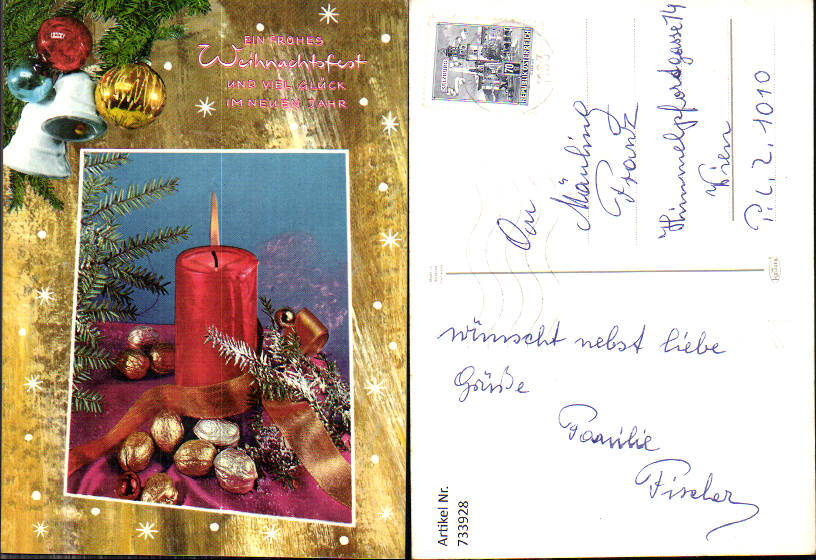 EIN FROHES
Weihnachtsfest
UND VIEL GLÜCK
IM NEUEN JAHR
REPUBLIK ÖSTERREICH
70
An
Franz
Himmelpfordgasse 14
Wien
P.L.Z. 1010
wünscht nebst liebe
Grüße
Familie
Fischer
Artikel Nr.
733928